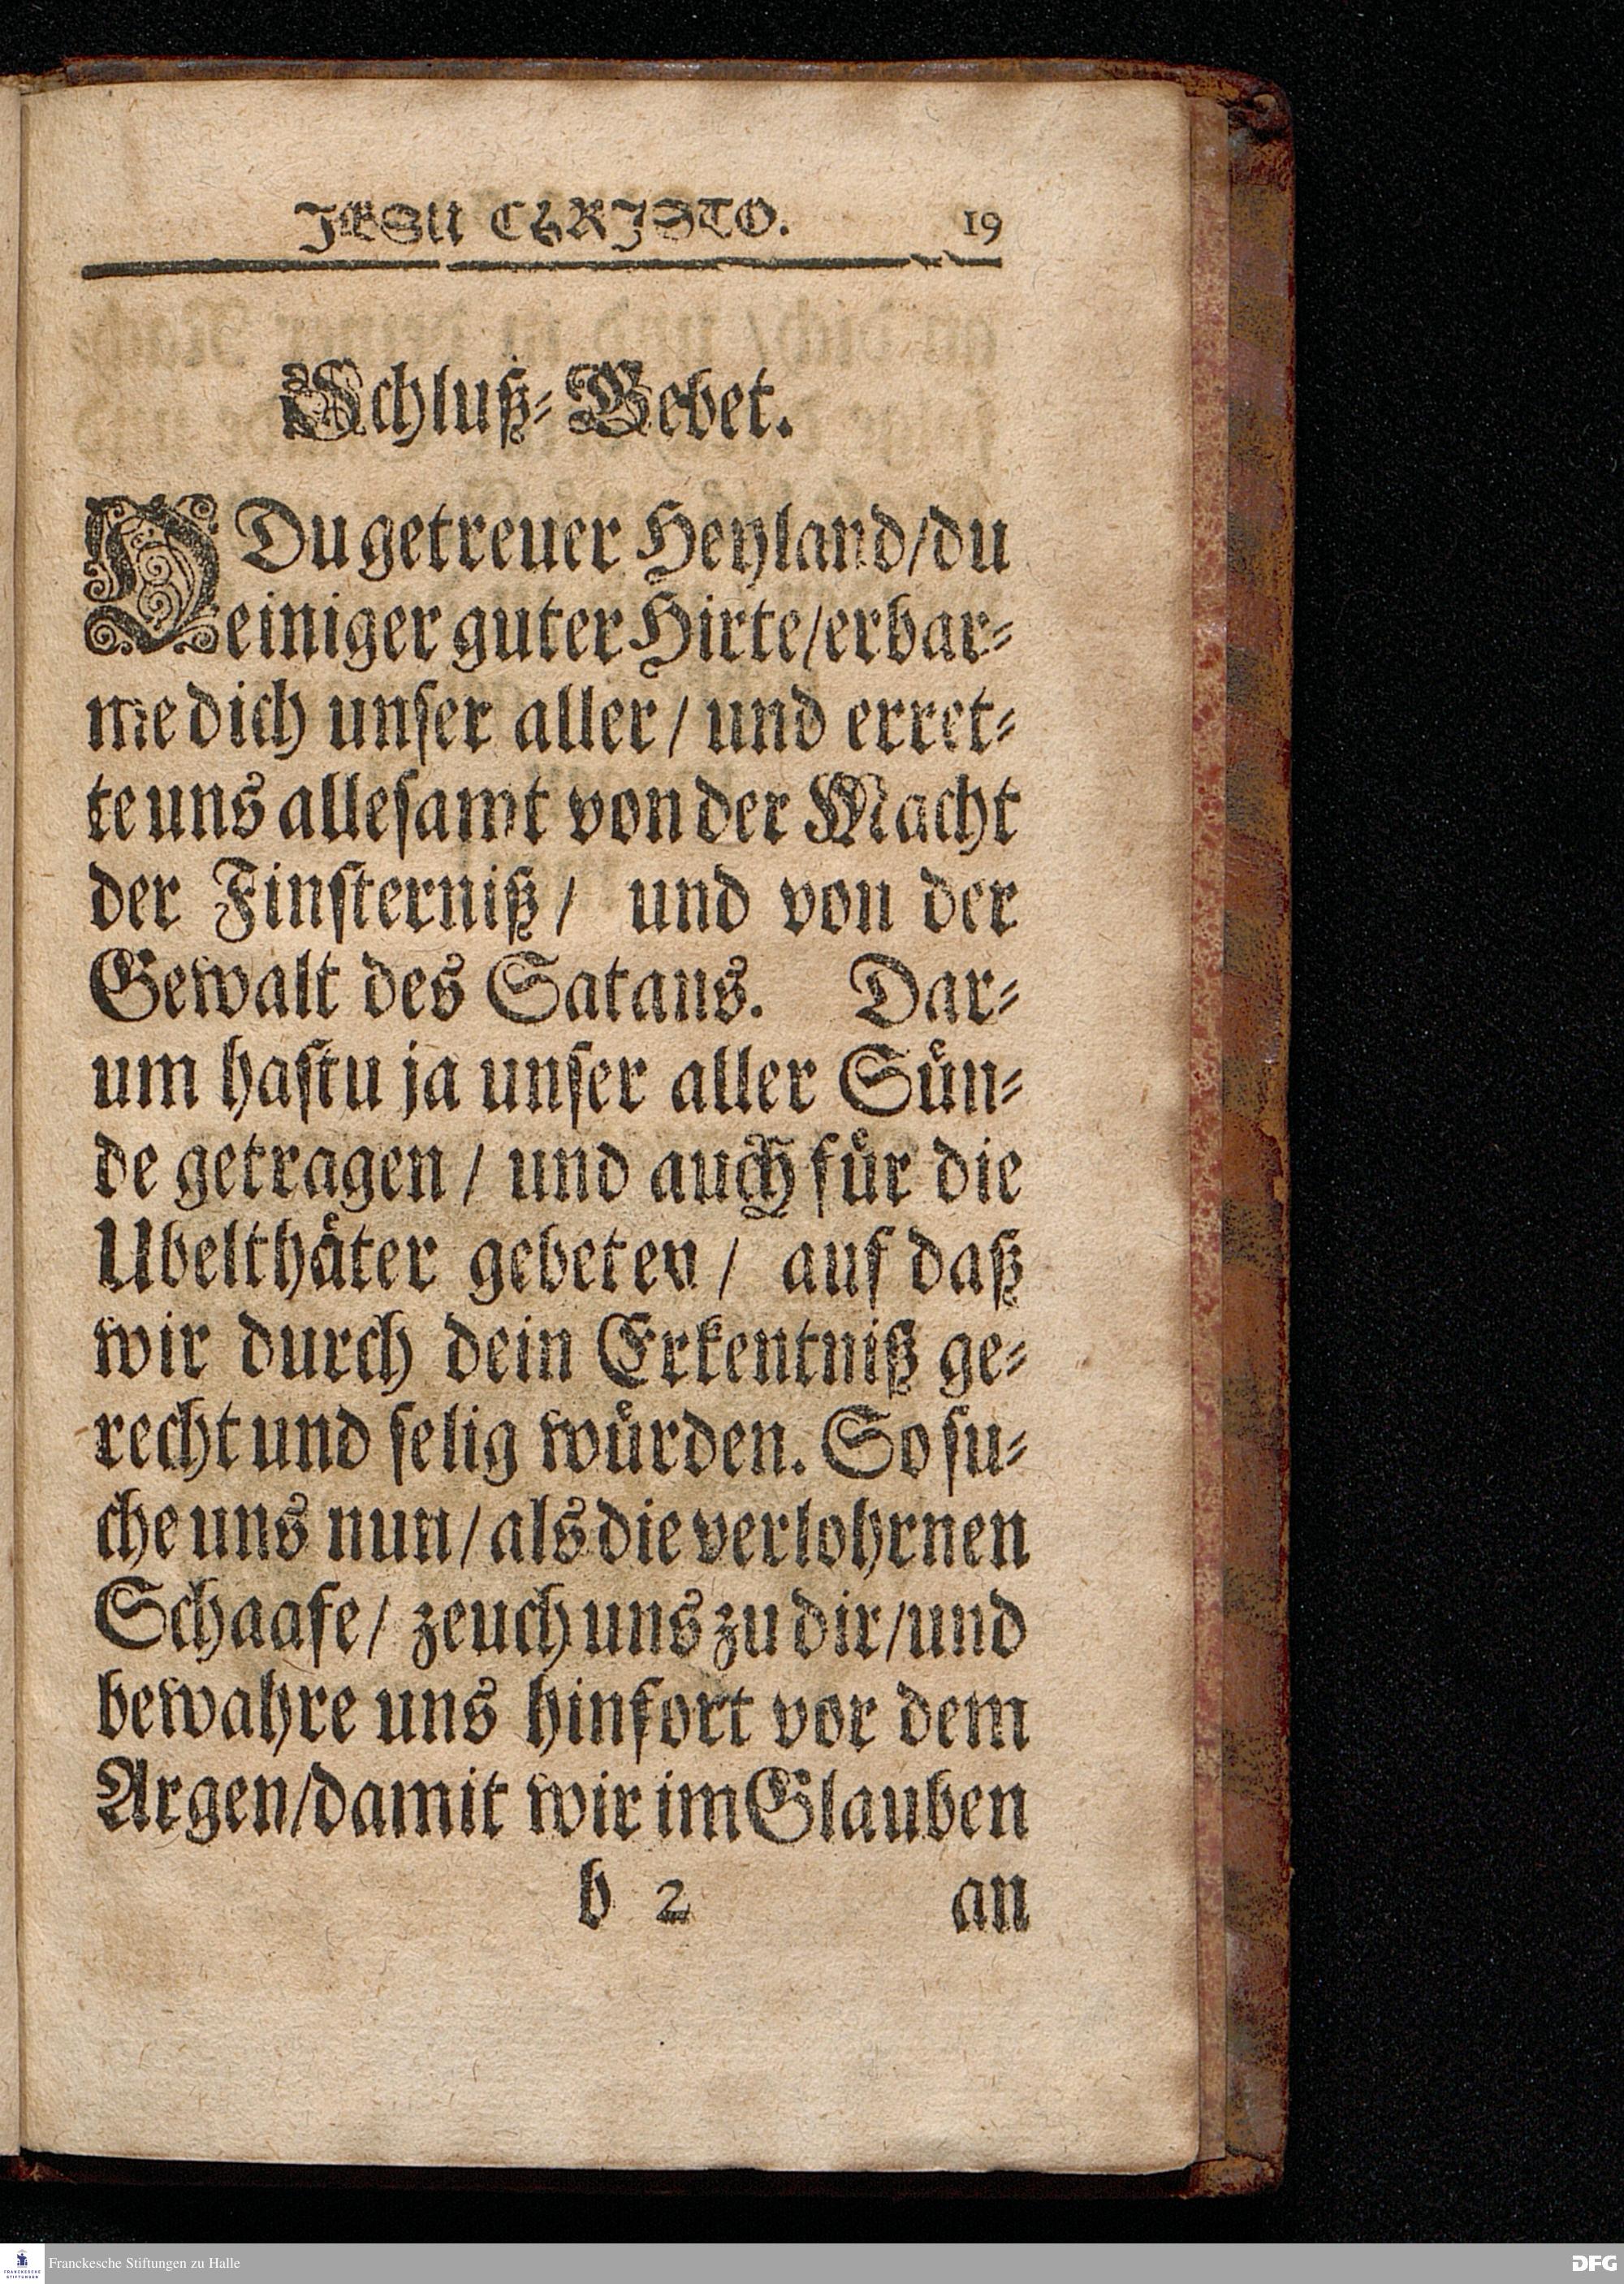 JESU CHRISTO. 19
Schluß-Gebet.
O Du getreuer Heyland/du
einiger guter Hirte/erbar-
me dich unser aller/ und erret-
te uns allesamt von der Macht
der Finsterniß/ und von der
Gewalt des Satans. Dar-
um hastu ja unser aller Sün-
de getragen/ und auch für die
Ubelthäter gebeten/ auf daß
wir durch dein Erkentniß ge-
recht und selig würden. So su-
che uns nun/ als die verlohrnen
Schaafe/ zeuch uns zu dir/und
bewahre uns hinfort vor dem
Argen/damit wir im Glauben
b 2 an
Franckesche Stiftungen zu Halle
DFG